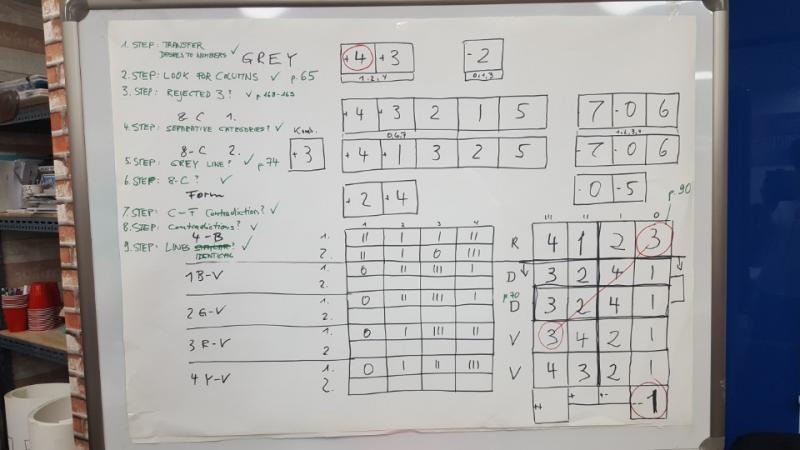 1. STEP: TRANSFER
DESIRES TO NUMBERS ✓ GREY
2. STEP: LOOK FOR COLUMNS ✓ p. 65
3. STEP: REJECTED 3? ✓ p. 168-169
8-C 1.
4. STEP: SEPARATIVE CATEGORIES? ✓
8-C 2.
5. STEP: GREY LINE? ✓ p 74
6. STEP: 8-C? ✓
Form
7. STEP: C-T Contradiction? ✓
8. STEP: Contradictions? ✓
4-B
9. STEP: LINES ✓
IDENTICAL
+4 +3
1,2,4
-2
0,1,3
+4 +3 2 1 5
0,6,7
7 -0 6
Komb.
+3
+4 +1 3 2 5
-7 -0 6
+2 +4
-0 -5
p. 90
1 2 3 4
1. II I I II
2. II I 0 III
1 B-V
1. 0 II III I
2.
2 G-V
1. 0 II III I
2.
3 R-V
1. 0 I III II
2
4 Y-V
1. 0 I II III
2.
III II I 0
R 4 1 2 3
D 3 2 4 1
p. 70
D 3 2 4 1
V 3 4 2 1
V 4 3 2 1
++ +- -- 1